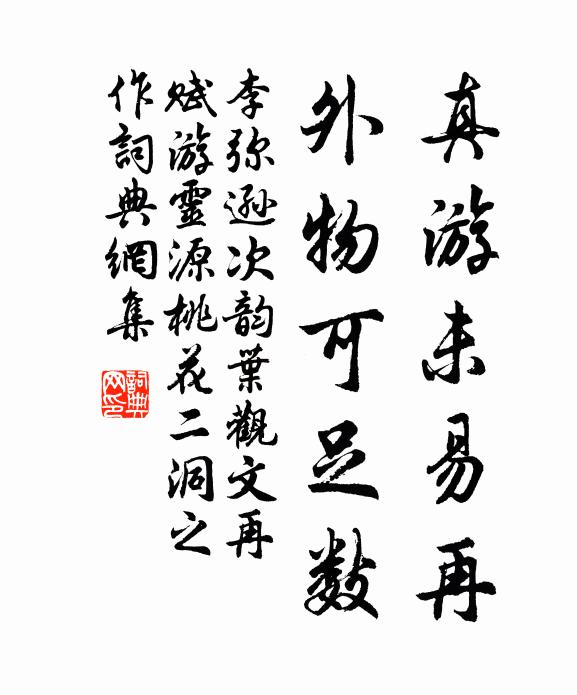 真游未易再
外物可足数
李弥逊次韵葉觀文再
赋游靈源桃花二洞之
作詞典網集
詞典
网印